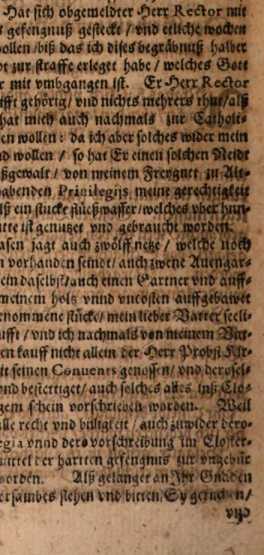 Hat sich obgemeldter Herr Rector mit
gefengnuß gesteckt / vnd etliche wochen
ollen / biß das ich dises begräbnuß halber
ot zur straffe erleget habe / welches Gott
er mit vmbgangen ist. Er Herr Rector
ifft gehörig / vnd nichts mehrers thut / alß
hat mich auch nachmals zur Catholi-
en wollen: da ich aber solches wider mein
nd wollen / so hat Er einen solchen Neidt
ßgewalt / von meinem Freygutt zu
habenden Privilegijs meine gerechtigkeit
lß ein stucke flüeßwasser / welches vber hun-
utte ist genützet vnd gebraucht worden.
asen jagt auch zwölff netze / welche noch
n vorhanden seindt / auch zwene
ein daselbst / auch einen Gartner vnd auff-
meinem holtz vnnd vncosten auffgebawet
enommene stücke / mein lieber Vatter seeli-
ufft / vnd ich nachmals von meinem
en kauff nicht allein der Herr Probst
it seinen Convents genossen / vnd
nd bestettiget / auch solches alles inß Clo-
gem schein vorschrieben worden. Weil
lle recht vnd billigkeit / auch zuwider dero-
egia vnnd dero vorschreibung im Closter-
mittel der hartten gefengnus zur vngebür
worden. Alß gelanget an Ihr Gnaden
ersambes flehen vnd bitten / Sy geruhen /